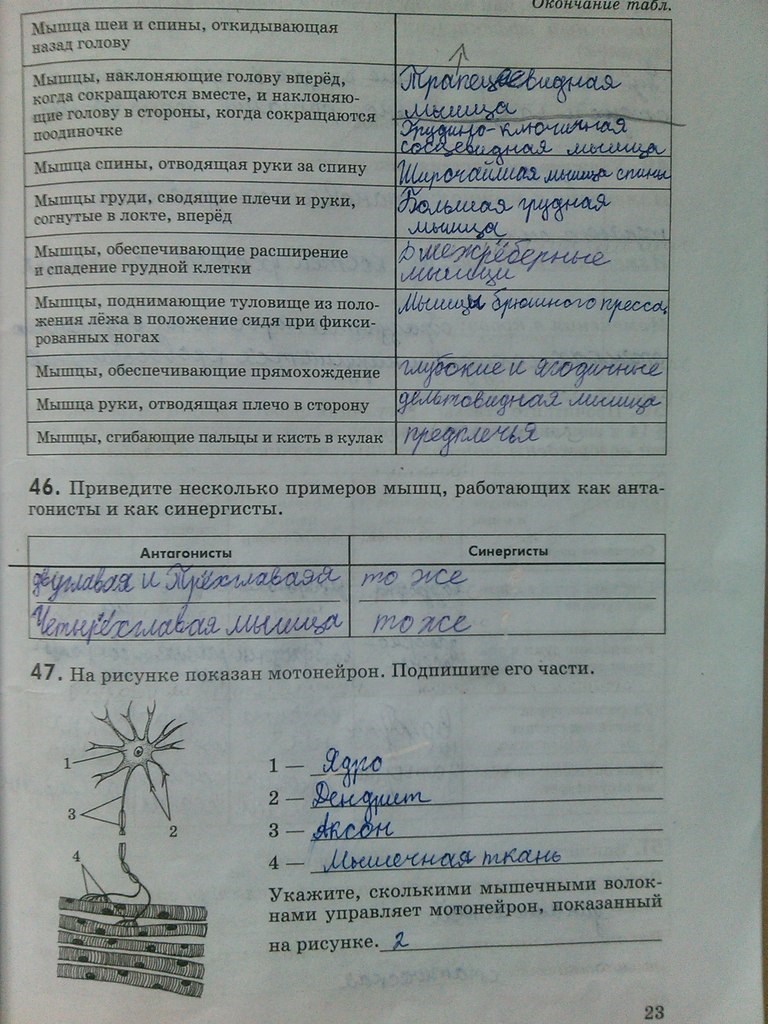 Окончание табл.
Мышца шеи и спины, откидывающая
назад голову
Мышцы, наклоняющие голову вперёд,
когда сокращаются вместе, и наклоняю-
щие голову в стороны, когда сокращаются
поодиночке
Трапециевидная
мышца
Грудино-ключичная
сосцевидная мышца
Мышца спины, отводящая руки за спину
Широчайшая мышца спины
Мышцы груди, сводящие плечи и руки,
согнутые в локте, вперёд
Большая грудная
мышца
Мышцы, обеспечивающие расширение
и спадение грудной клетки
межрёберные
мышцы
Мышцы, поднимающие туловище из поло-
жения лёжа в положение сидя при фикси-
рованных ногах
Мышцы брюшного пресса
Мышцы, обеспечивающие прямохождение
глубокие и ягодичные
Мышца руки, отводящая плечо в сторону
дельтовидная мышца
Мышцы, сгибающие пальцы и кисть в кулак
предплечья
46. Приведите несколько примеров мышц, работающих как анта-
гонисты и как синергисты.
Антагонисты
Синергисты
двуглавая и Трёхглавая
то же
Четырёхглавая мышца
то же
47. На рисунке показан мотонейрон. Подпишите его части.
1
3
2
4
1 — Ядро
2 — Дендрит
3 — Аксон
4 — Мышечная ткань
Укажите, сколькими мышечными волок-
нами управляет мотонейрон, показанный
на рисунке. 2
23